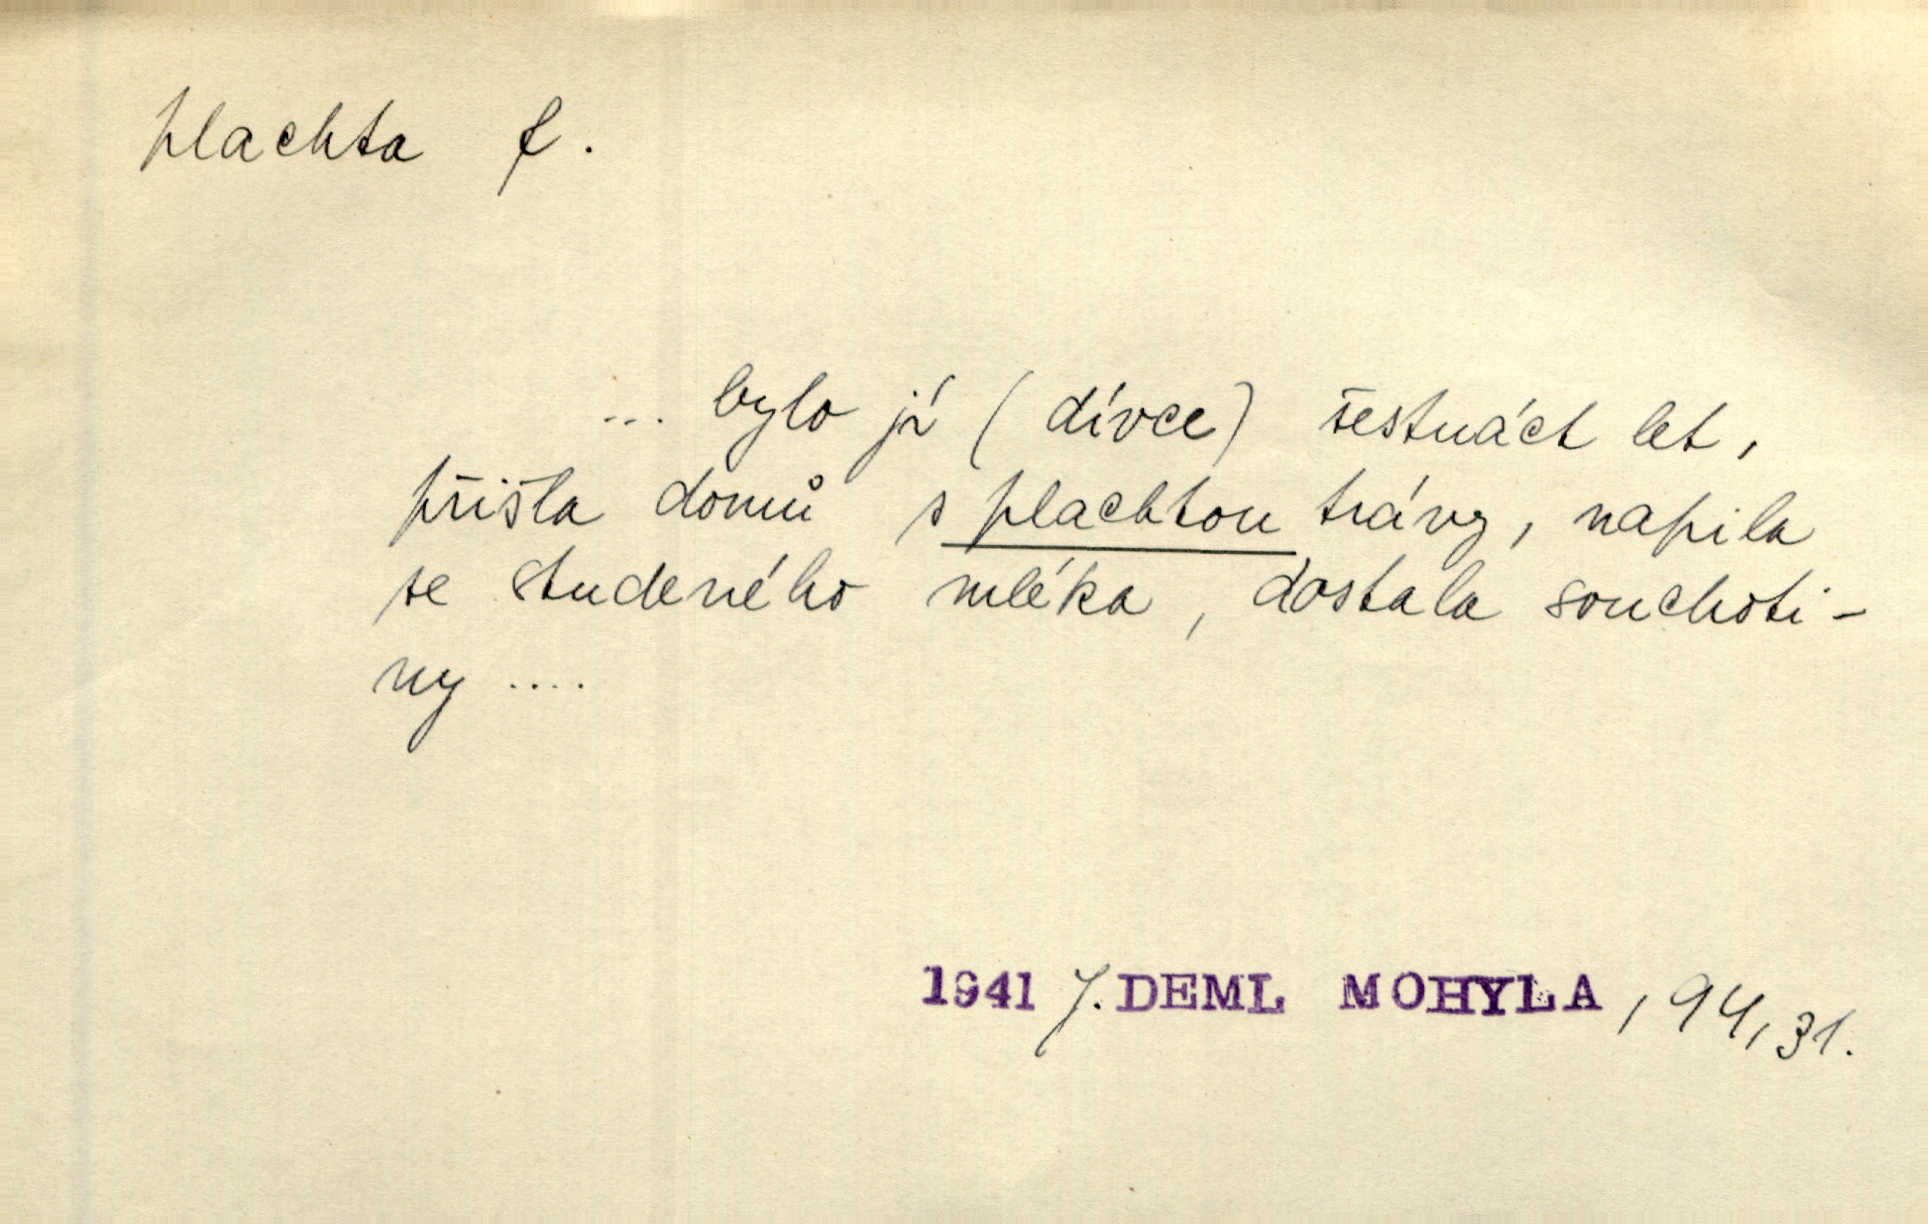 plachta f.
... bylo jí (dívce) šestnáct let,
přišla domů s plachtou trávy, napila
se studeného mléka, dostala souchoti-
ny ....
1941 J. DEML MOHYLA, 94, 31.